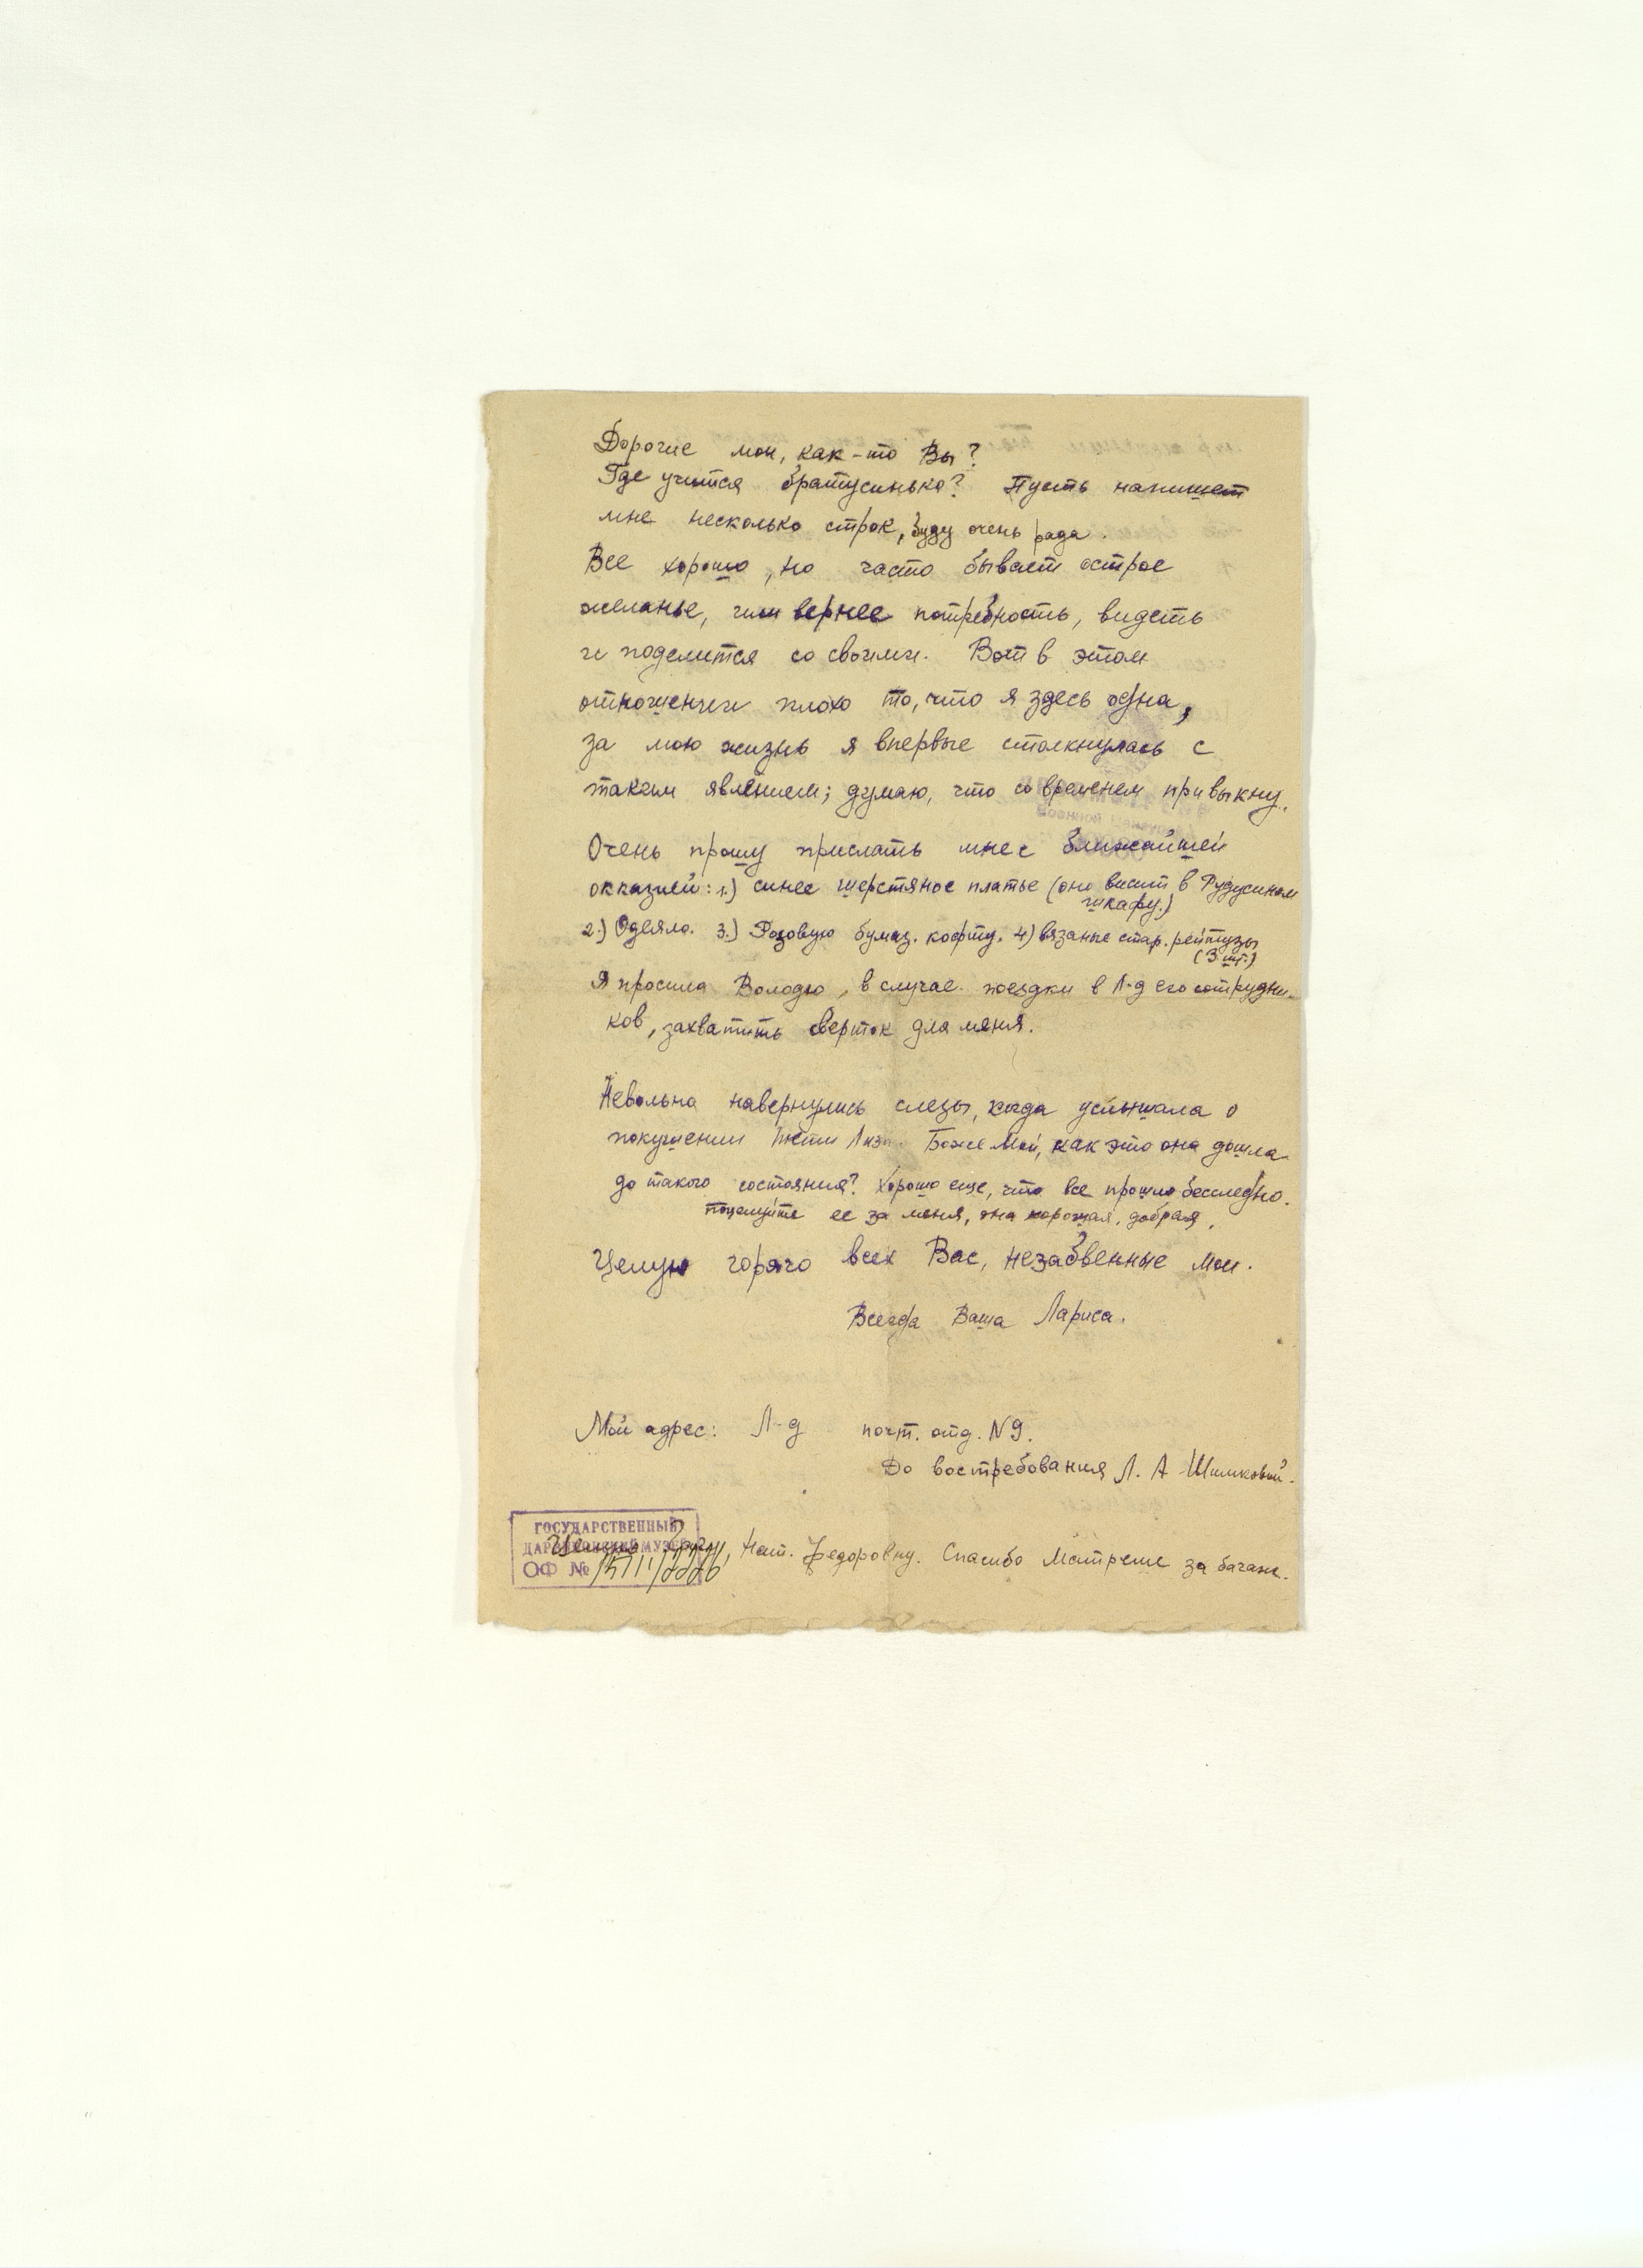 Дорогие мои, как-то Вы?
Где учится братусинько? Пусть напишет
мне несколько строк, буду очень рада.
Все хорошо, но часто бывает острое
желанье, или вернее потребность, видеть
и поделится со своими. Вот в этом
отношении плохо то, что я здесь одна,
за мою жизнь я впервые столкнулась с
таким явлением; думаю, что со временем привыкну.
Очень прошу прислать мне с ближайшей
оказией: 1.) синее шерстяное платье (оно висит в Рудусином
шкафу.)
2.) Одеяло. 3.) Розовую бумаз. кофту. 4) вязаные стар. рейтузы
(3 шт.)
Я просила Володю, в случае поездки в Л-д его сотрудни-
ков, захватить сверток для меня.
Невольно навернулись слезы, когда услышала о
покушении тети Лизы. Боже мой, как это она дошла
до такого состояния? Хорошо еще, что все прошло бесследно.
Поцелуйте ее за меня, она хорошая, добрая.
Целую горячо всех Вас, незабвенные мои.
Всегда Ваша Лариса.
Мой адрес: Л-д почт. отд. N 9.
До востребования Л. А. Шимковой.
Целую Нат. Федоровну. Спасибо Матреше за багаж.
ГОСУДАРСТВЕННЫЙ
ДАРВИНОВСКИЙ МУЗЕЙ
ОФ №